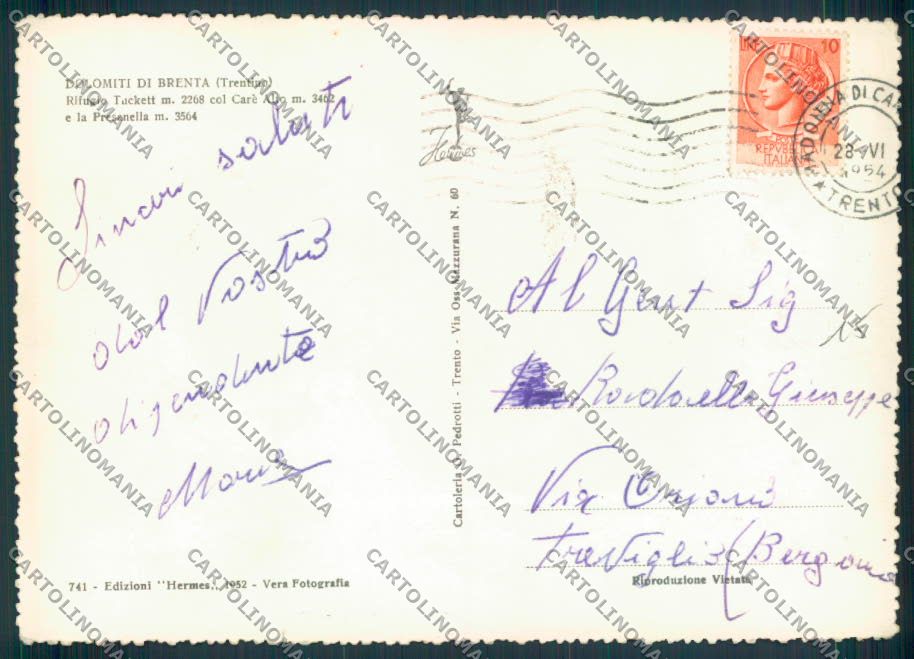 DOLOMITI DI BRENTA (Trentino)
Rifugio Tuckett m. 2268 col Carè Alto m. 3462
e la Presanella m. 3564
Sinceri saluti
dal Vostro
dipendente
Hermes
Cartoleria O. Pedrotti - Trento - Via Oss Mazzurana N. 60
LIRE 10
REPVBBLICA
ITALIANA
MADONNA DI CA
28 VI
1954
TRENTO
Al Gent Sig
Giuseppe
Via
Treviglio (Bergamo
15
741 - Edizioni "Hermes,, 1952 - Vera Fotografia
Riproduzione Vietata
CARTOLINOMANIA